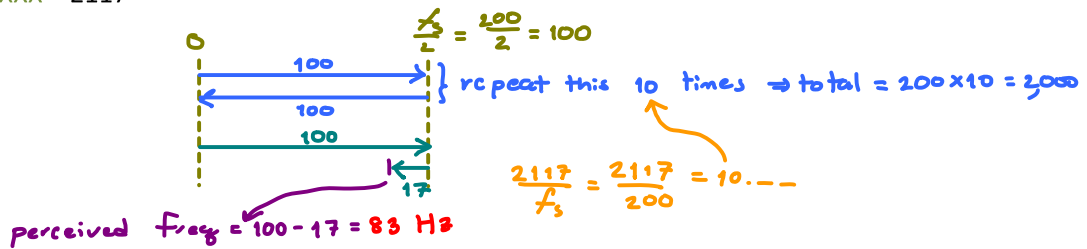 0
fs/2 = 200/2 = 100
100
100
} repeat this 10 times ⇒ total = 200×10 = 2,000
100
17
2117/fs = 2117/200 = 10.---
perceived freq = 100-17 = 83 Hz